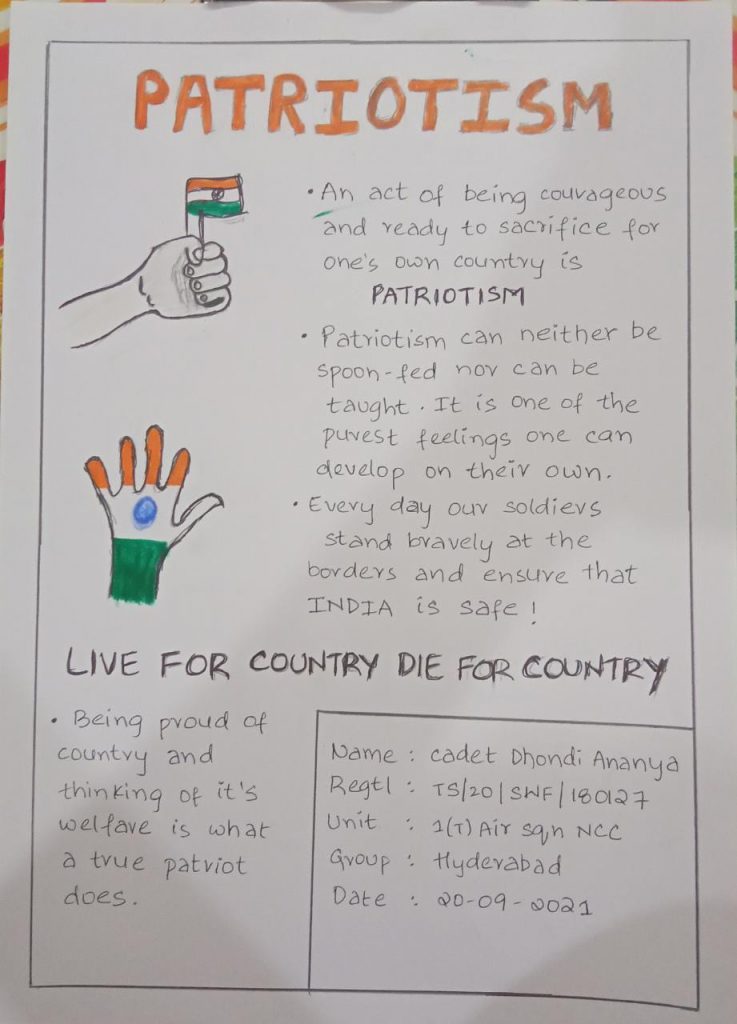 PATRIOTISM
• An act of being courageous
and ready to sacrifice for
one's own country is
PATRIOTISM
• Patriotism can neither be
spoon-fed nor can be
taught. It is one of the
purest feelings one can
develop on their own.
• Every day our soldiers
stand bravely at the
borders and ensure that
INDIA is safe!
LIVE FOR COUNTRY DIE FOR COUNTRY
• Being proud of
country and
thinking of it's
welfare is what
a true patriot
does.
Name : Cadet Dhondi Ananya
Regtl : TS/20/SWF/180127
Unit : 1(T) Air sqn NCC
Group : Hyderabad
Date : 20-09-2021